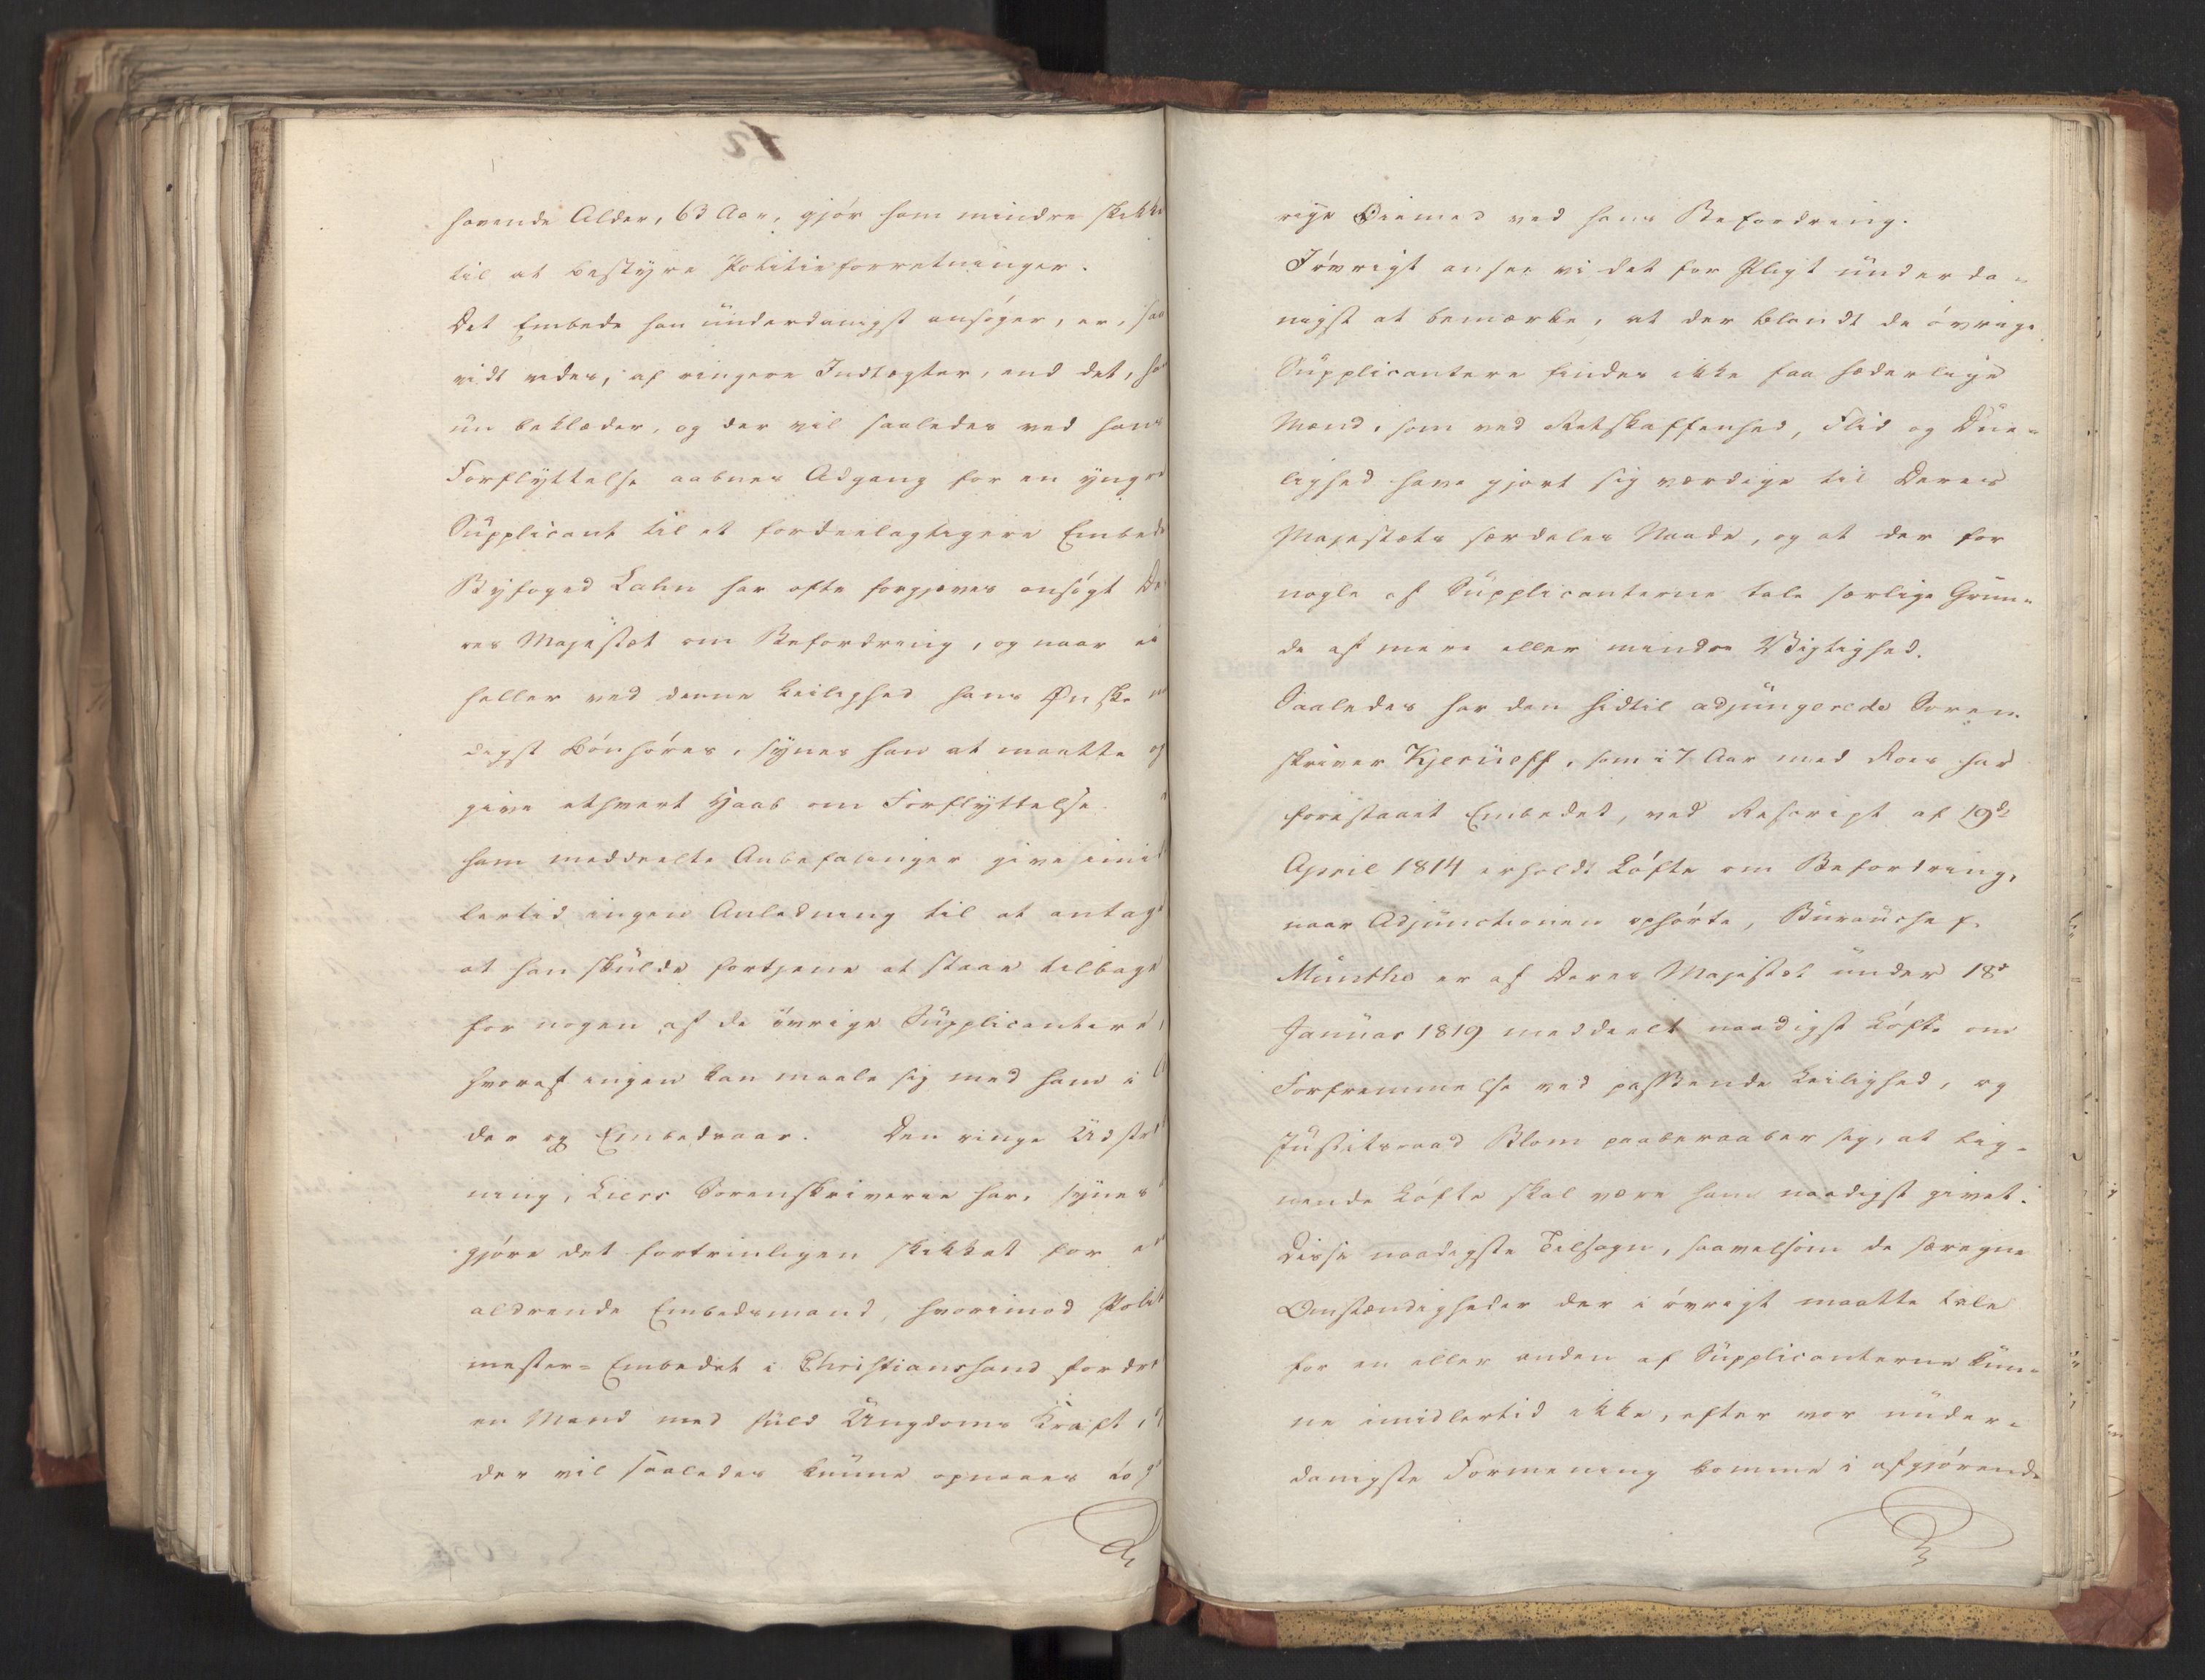 havende Alder, 63 Aar, gjør ham mindre skikke
til at bestyre Politieforretninger.
Det Embede han underdanigst ansøger, er, saa
vidt vides, af ringere Indtægter, end det, han
nu beklæder, og der vil saaledes ved hans
Forflyttelse aabnes Adgang for en yngre
Supplicant til et fordeelagtigere Embede
Byfoged Lahn har ofte forgjæves ansøgt De
res Majestæt om Befordring, og naar ei
heller ved denne Leilighed hans Ønske
digst bønhøres, synes han at maatte op
give ethvert Haab om Forflyttelse.
ham meddeelte Anbefalinger give imid
lertid ingen Anledning til at antage
at han skulde fortjene at staae tilbage
for nogen af de øvrige Supplicantere,
hvoraf ingen kan maale sig med ham i Al
der og Embedsaar. Den ringe Udstræk
ning, Liers Sorenskriverie har, synes
gjøre det fortrinligen skikket for en
aldrende Embedsmand, hvorimod Polit
mester-Embedet i Christianssand fordrer
en Mand med fuld Ungdoms Kraft,
der vil saaledes kunne opnaaes
rige Øiemed ved hans Befordring.
Iøvrigt ansee vi det for Pligt underda-
nigst at bemærke, at der blandt de øvrige
Supplicantere findes ikke faa hæderlige
Mænd, som ved Retskaffenhed, Flid og Due-
lighed have gjort sig værdige til Deres
Majestæts særdeles Naade, og at der for
nogle af Supplicanterne tale særlige Grun-
de af mere eller mindre Vigtighed.
Saaledes har den hidtil adjungerede Soren-
skriver Kjerueff, som i 7 Aar med Roes har
forestaaet Embedet, ved Rescript af 19de
April 1814 erholdt Løfte om Befordring,
naar Adjunctionen ophørte, Bureauchef
Munthe er af Deres Majestæt under 18d
Januar 1819 meddeelt naadigst Løfte om
Forfremmelse ved passende Leilighed, og
Justitsraad Blom paaberaaber sig, at lig-
nende Løfte skal være ham naadigst givet.
Disse naadigste Tilsagn, saavelsom de særegne
Omstændigheder der i øvrigt maatte tale
for en eller anden af Supplicanterne kun-
ne imidlertid ikke, efter vor under-
danigste Formening komme i afgjørende